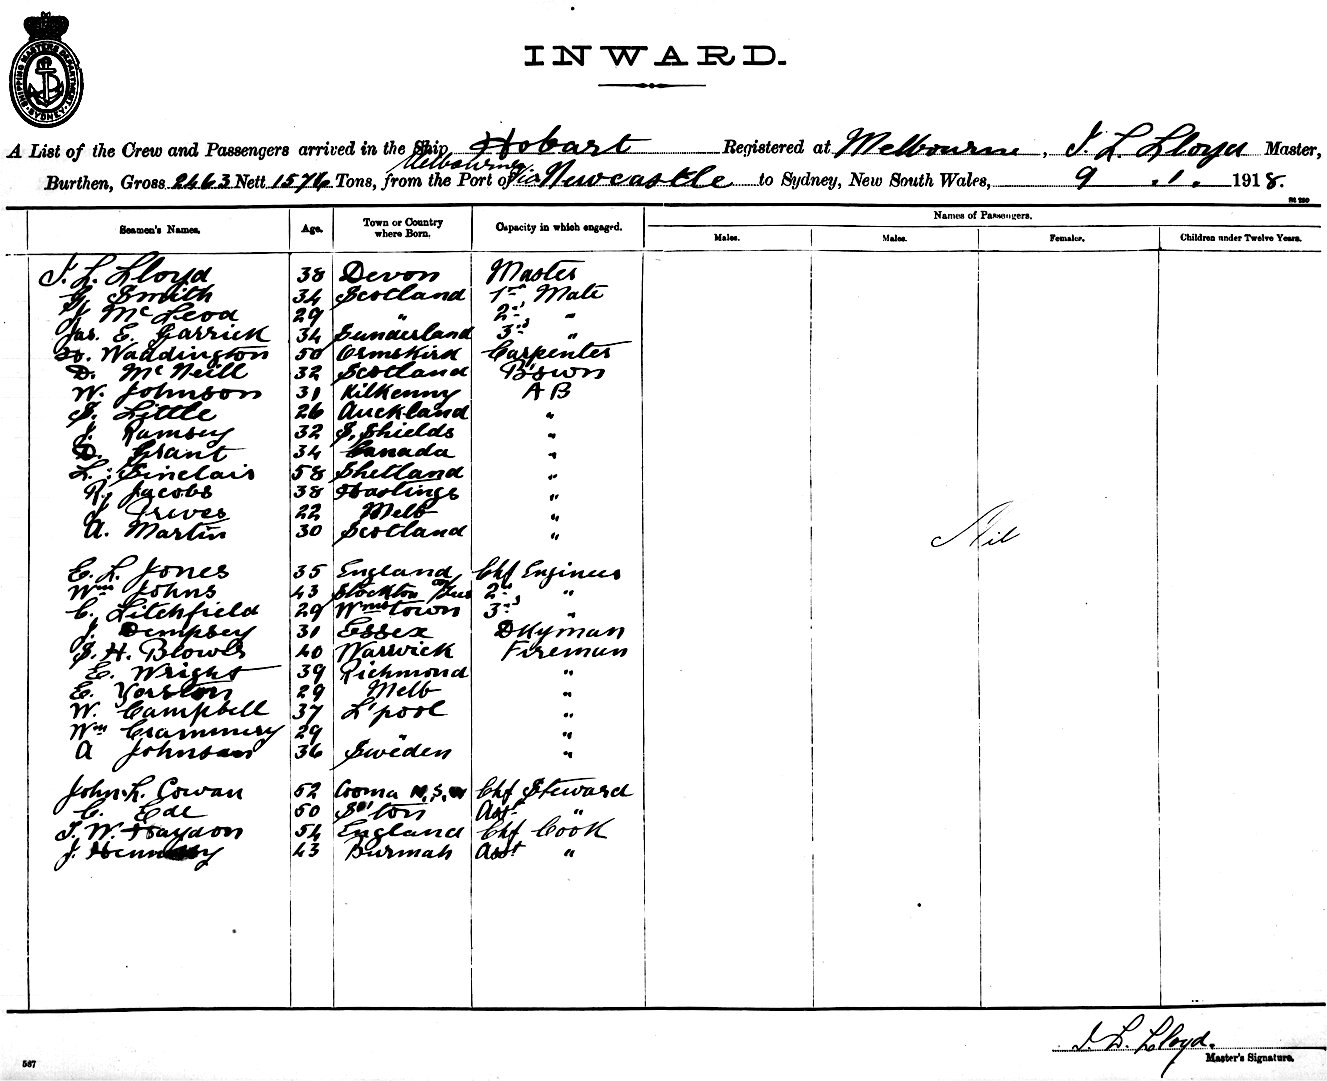 SHIPPING MASTERS DEPARTMENT SYDNEY
INWARD.
A List of the Crew and Passengers arrived in the Ship Hobart Registered at Melbourne, J. L. Lloyd Master,
Melbourne
Burthen, Gross 2463 Nett 1576 Tons, from the Port of Via Newcastle to Sydney, New South Wales, 9 . 1. 1918.
Names of Passengers.
Seamen's Names. Age. Town or Country where Born. Capacity in which engaged. Males. Males. Females. Children under Twelve Years.
J. L. Lloyd 38 Devon Master
G. Smith 34 Scotland 1st Mate
J McLeod 29 " 2nd "
Jas. E. Garrick 34 Sunderland 3rd "
Waddington 50 Ormskird Carpenter
D. McNeill 32 Scotland B'swn
W. Johnson 31 Kilkenny AB
S. Little 26 Auckland "
J. Ramsey 32 S. Shields "
D. Grant 34 Canada "
L. Sinclair 58 Shetland "
R. Jacobs 38 Hastings "
J Greves 22 Melb "
A. Martin 30 Scotland "
Nil
E. L. Jones 35 England Chf Engineer
Wm Johns 43 Stockton on Tees 2nd "
C. Litchfield 29 Wmstown 3rd "
J. Dempsey 31 Essex Dkyman
S. H. Blowes 40 Warwick Fireman
E. Wright 39 Richmond "
E. Yorston 29 Melb "
W. Campbell 37 L'pool "
Wm Crammery 29 " "
A Johnson 36 Sweden "
John L. Cowan 52 Cooma N.S.W Chf Steward
C. Ede 50 S'ton Asst "
J. W. Haydon 54 England Chf Cook
J. 43 Burmah Asst "
J. L. Lloyd.
Master's Signature.
587